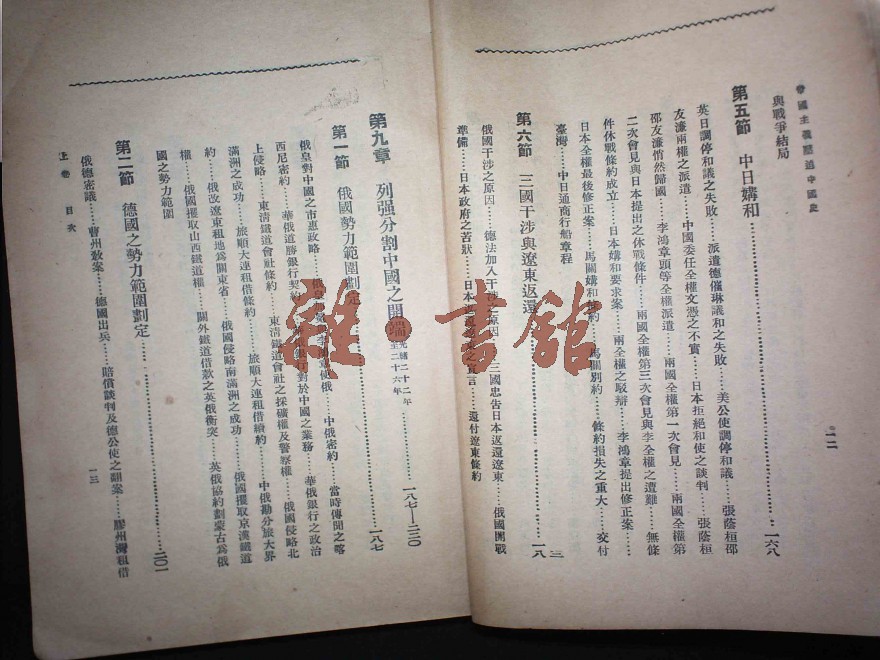 帝國主義壓迫中國史
一二
與戰爭結局
第五節 中日媾和……一六八
英日調停和議之失敗……派遣德催琳議和之失敗……美公使調停和議……張蔭桓邵
友濂兩權之派遣……中國委任全權文憑之不實……日本拒絕和使之談判……張蔭桓
邵友濂悄然歸國……李鴻章頭等全權派遣……兩國全權第一次會見……兩國全權第
二次會見與日本提出之休戰條件……兩國全權第三次會見與李全權之遭難……無條
件休戰條約成立……日本媾和要求案……兩全權之駁辯……李鴻章提出修正案……
日本全權最後修正案……馬關媾和條約……馬關別約……條約損失之重大……交付
臺灣……中日通商行船章程
第六節 三國干涉與遼東返還……一八三
俄國干涉之原因……德法加入干涉之原因……三國忠告日本返還遼東……俄國開戰
準備……日本政府之苦狀……日本……宣言……還付遼東條約
第九章 列强分割中國之開端 光緒二十二年至二十六年 一八七—二三〇
第一節 俄國勢力範圍劃定……一八七
俄皇對中國之市惠政略……俄皇……李鴻章使俄……中俄密約……當時傳聞之喀
西尼密約……華俄道勝銀行契約……華俄銀行對於中國之業務……華俄銀行之政治
上侵略……東清鐵道會社條約……東清鐵道會社之採礦權及警察權……俄國侵略北
滿洲之成功……旅順大連租借條約……旅順大連租借續約……中俄勘分旅大界
約……俄改遼東租地為關東省……俄國侵略南滿洲之成功……俄國攫取京漢鐵道
權……俄國攫取山西鐵道權……關外鐵道借款之英俄衝突……英俄協約劃蒙古為俄
國之勢力範圍
第二節 德國之勢力範圍劃定……二〇一
俄德密議……曹州教案……德國出兵……賠償談判及德公使之翻案……膠州灣租借
上卷 目次
一三
雜·書館